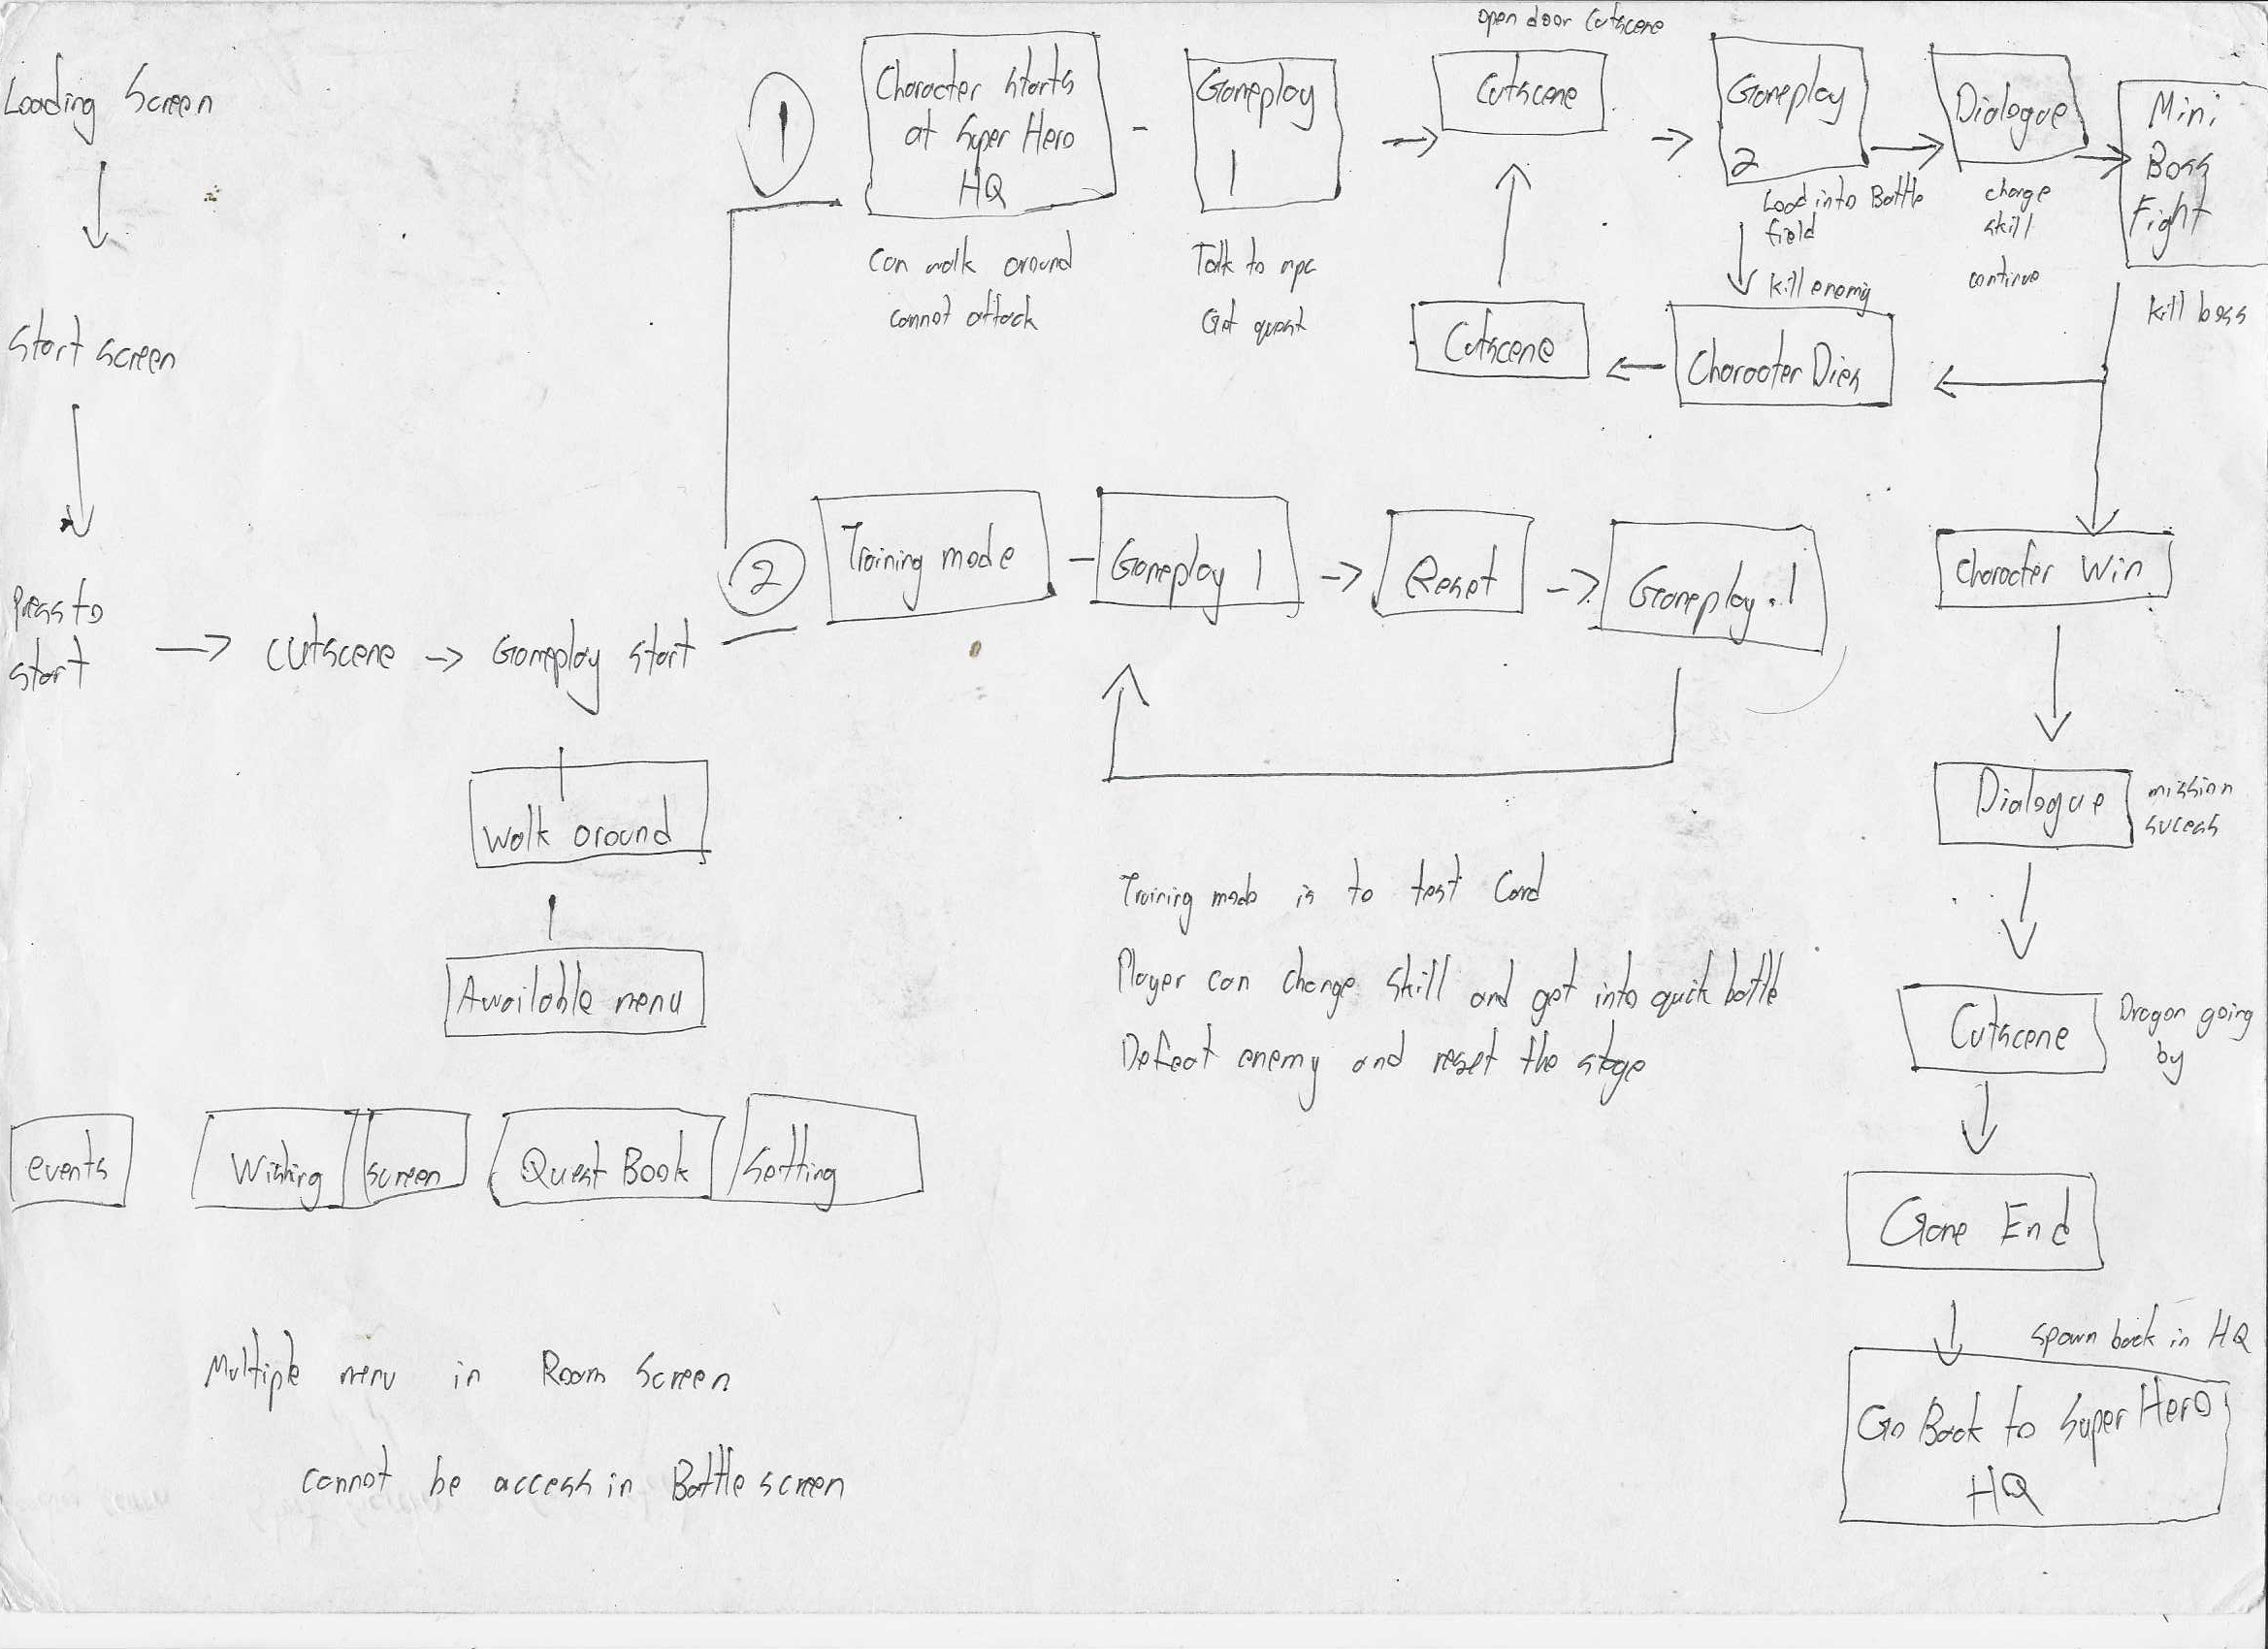 Loading Screen
Start screen
Press to
start
cutscene
Gameplay start
walk around
Available menu
events
Wishing
screen
Quest Book
Setting
Multiple menu in Room Screen
cannot be access in Battle screen
1
Character starts
at Super Hero
HQ
Can walk around
cannot attack
Gameplay
1
Talk to npc
Get quest
open door Cutscene
Cutscene
Gameplay
2
Load into Battle
field
kill enemy
Character Dies
Cutscene
Dialogue
change
skill
continue
Mini
Boss
Fight
kill boss
2
Training mode
Gameplay 1
Reset
Gameplay 1
Training mode is to test Card
Player can change skill and get into quick battle
Defeat enemy and reset the stage
Character Win
Dialogue
mission
sucess
Cutscene
Dragon going
by
Game End
spawn back in HQ
Go Back to Super Hero
HQ